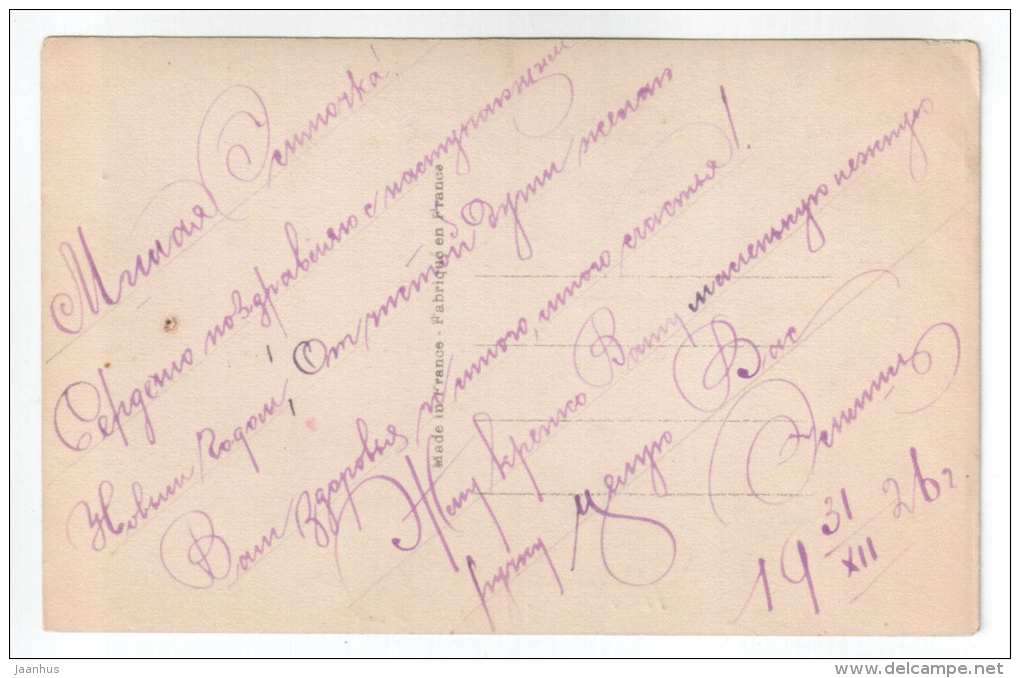 Милая Симочка!
Сердечно поздравляю с наступающим
Новым Годом! От чистой души желаю
Вам здоровья и много, много счастья!
Жму крепко Вашу маленькую нежную
ручку целую Вас
19 31/XII 26 г.
Made in France - Fabriqué en France
jaanhus
delcampe.net